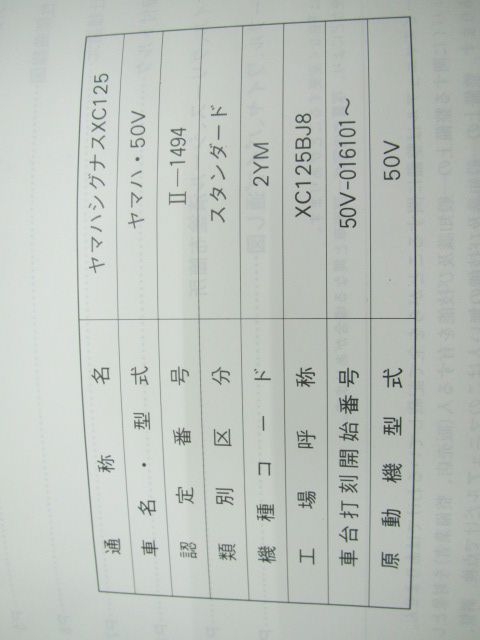 通称名 ヤマハシグナスXC125
車名・型式 ヤマハ・50V
認定番号 Ⅱ—1494
類別区分 スタンダード
機種コード 2YM
工場呼称 XC125BJ8
車台打刻開始番号 50V-016101～
原動機型式 50V